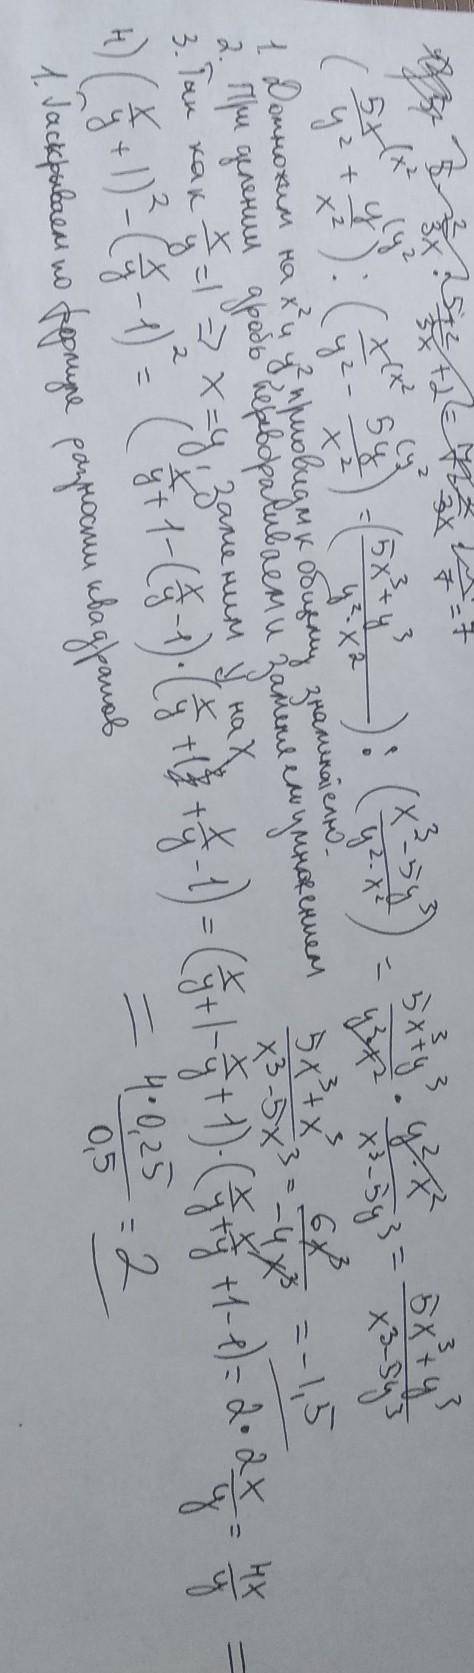 (5x/y² + y/x²) : (x/y² - 5y/x²) = (5x³+y³/y²·x²) : (x³-5y³/y²·x²) = 5x³+y³/y²·x² · y²·x²/x³-5y³ = 5x³+y³/x³-5y³
1. Домножим на x² и y² приовидм к общему знаменателю.
2. При делении дробь переворачиваем и заменяем умножением
3. Так как x/y = 1 => x = y; заменим y на x
5x³+x³/x³-5x³ = 6x³/-4x³ = -1,5
4) (x/y + 1)² - (x/y - 1)² = (x/y + 1 - (x/y - 1) · (x/y + 1 + x/y - 1) = (x/y + 1 - x/y + 1) · (x/y + x/y + 1 - 1) = 2 · 2x/y = 4x/y =
= 4·0,25/0,5 = 2
1. Раскрываем по формуле разности квадратов